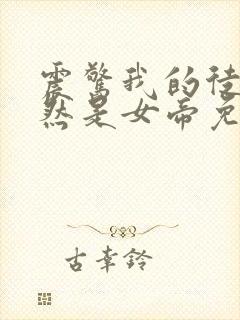 震惊我的徒
然是女帝免
古幸铃